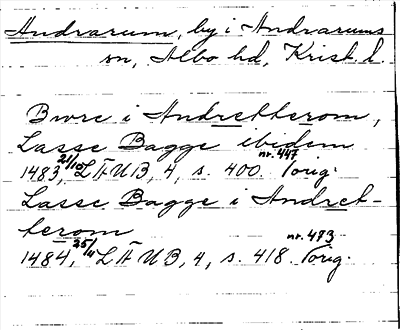 Andrarum, by i Andrarums
sn, Albo hd, Krist. l.
Bwre i Andretterom,
Lasse Bagge ibidem
1483 21/10, LÄUB, 4, s. 400. nr. 447 orig.
Lasse Bagge i Andret-
terom
1484, 25/4 LÄUB, 4, s. 418. nr. 473 orig.